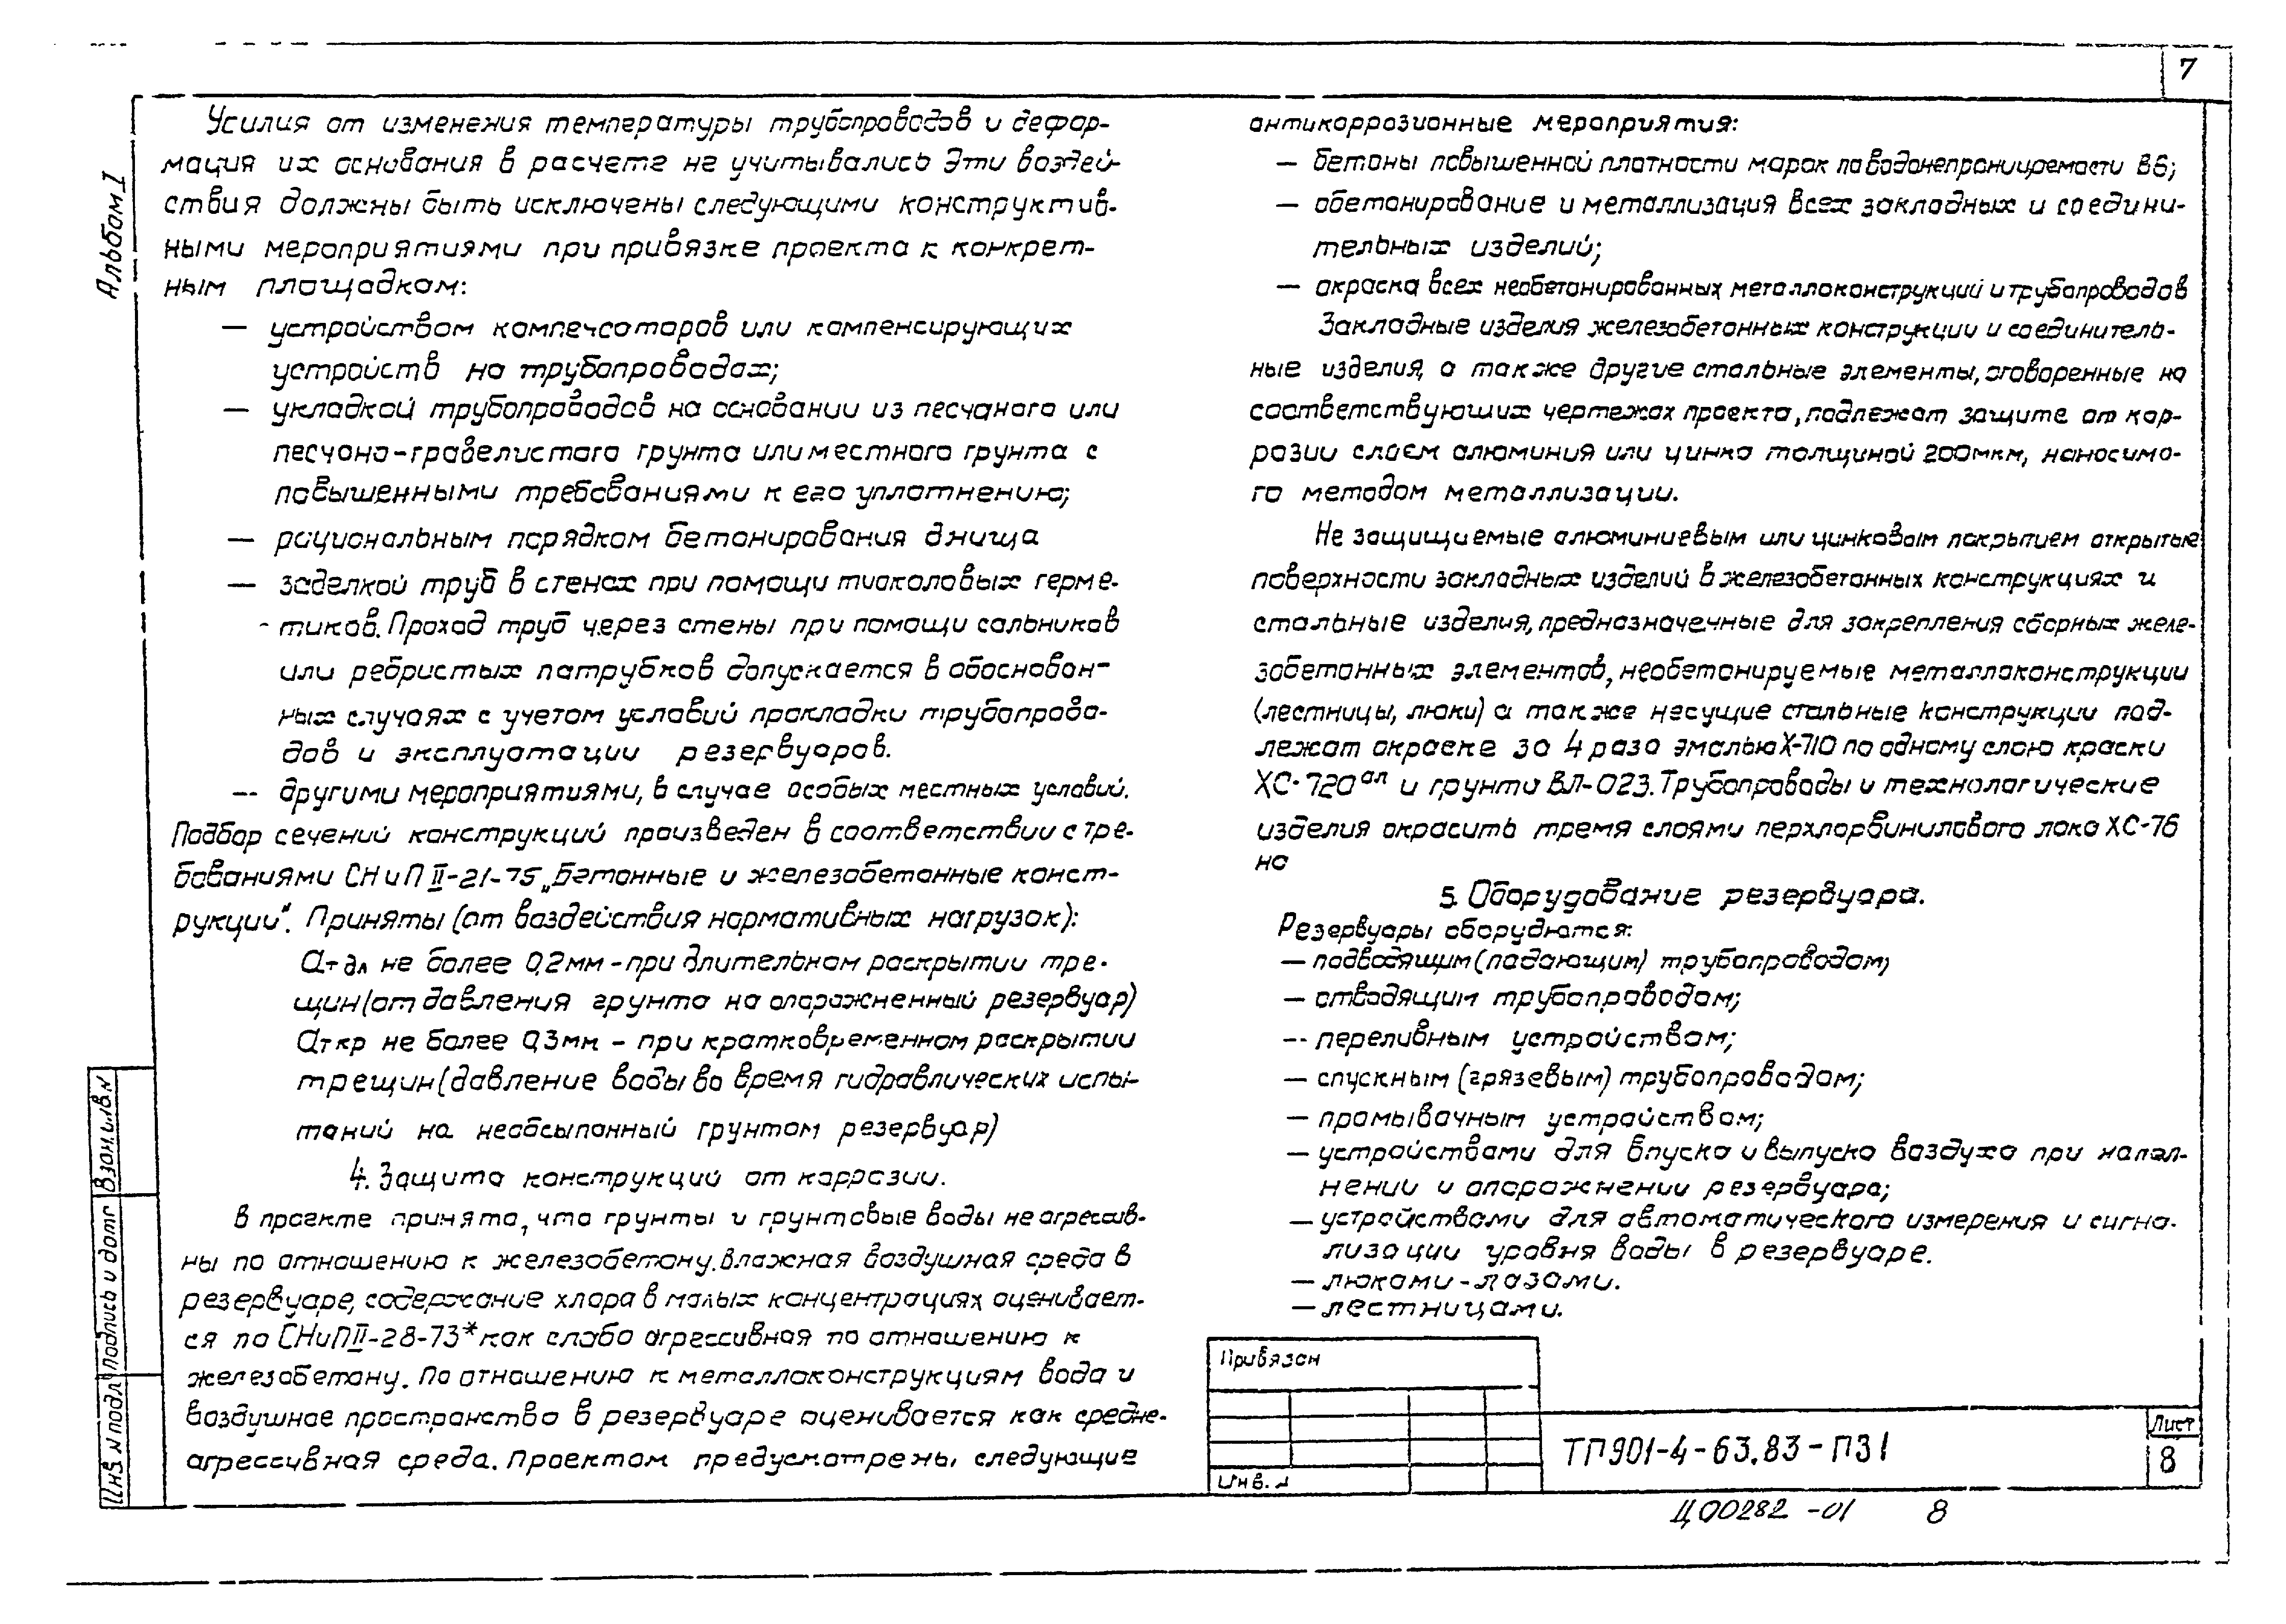 7
Альбом I
Усилия от изменения температуры трубопроводов и дефор-
мация их основания в расчете не учитывались Эти воздей-
ствия должны быть исключены следующими конструктив-
ными мероприятиями при привязке проекта к конкрет-
ным площадкам:
— устройством компенсаторов или компенсирующих
устройств на трубопроводах;
— укладкой трубопроводов на основании из песчаного или
песчано-гравелистого грунта или местного грунта с
повышенными требованиями к его уплотнению;
— рациональным порядком бетонирования днища
— заделкой труб в стенах при помощи тиоколовых герме-
тиков. Проход труб через стены при помощи сальников
или ребристых патрубков допускается в обоснован-
ных случаях с учетом условий прокладки трубопрово-
дов и эксплуатации резервуаров.
-- другими мероприятиями, в случае особых местных условий.
Подбор сечений конструкций произведен в соответствии с тре-
бованиями СНиП II-21-75 „Бетонные и железобетонные конст-
рукции". Приняты (от воздействия нормативных нагрузок):
ат дл не более 0,2мм - при длительном раскрытии тре-
щин (от давления грунта на опорожненный резервуар)
ат кр не более 0,3мм - при кратковременном раскрытии
трещин (давление воды во время гидравлических испы-
таний на необсыпанный грунтом резервуар)
4. Защита конструкций от коррозии.
В проекте принято, что грунты и грунтовые воды не агрессив-
ны по отношению к железобетону. Влажная воздушная среда в
резервуаре, содержание хлора в малых концентрациях оценивает-
ся по СНиП II-28-73* как слабо агрессивная по отношению к
железобетону. По отношению к металлоконструкциям вода и
воздушное пространство в резервуаре оценивается как средне-
агрессивная среда. Проектом предусмотрены следующие
антикоррозионные мероприятия:
— бетоны повышенной плотности марок по водонепроницаемости В6;
— обетонирование и металлизация всех закладных и соедини-
тельных изделий;
— окраска всех необетонированных металлоконструкций и трубопроводов
Закладные изделия железобетонных конструкции и соединитель-
ные изделия, а также другие стальные элементы, оговоренные на
соответствующих чертежах проекта, подлежат защите от кор-
розии слоем алюминия или цинка толщиной 200мкм, наносимо-
го методом металлизации.
Не защищаемые алюминиевым или цинковым покрытием открытые
поверхности закладных изделий в железобетонных конструкциях и
стальные изделия, предназначенные для закрепления сборных желе-
зобетонных элементов, необетонируемые металлоконструкции
(лестницы, люки) а также несущие стальные конструкции под-
лежат окраске за 4 раза эмалью Х-710 по одному слою краски
ХС-720 ал и грунта ВЛ-023. Трубопроводы и технологические
изделия окрасить тремя слоями перхлорвинилового лака ХС-76
на
5. Оборудование резервуара.
Резервуары оборудуются:
— подводящим (подающим) трубопроводом;
— отводящим трубопроводом;
-- переливным устройством;
— спускным (грязевым) трубопроводом;
— промывочным устройством;
— устройствами для впуска и выпуска воздуха при напол-
нении и опорожнении резервуара;
— устройствами для автоматического измерения и сигна-
лизации уровня воды в резервуаре.
— люками-лазами.
— лестницами.
Взам. инв. N
Подпись и дата
Инв. N подл
Привязан
Инв. N
ТП901-4-63.83-ПЗ1
Лист
8
Ц00282-01 8